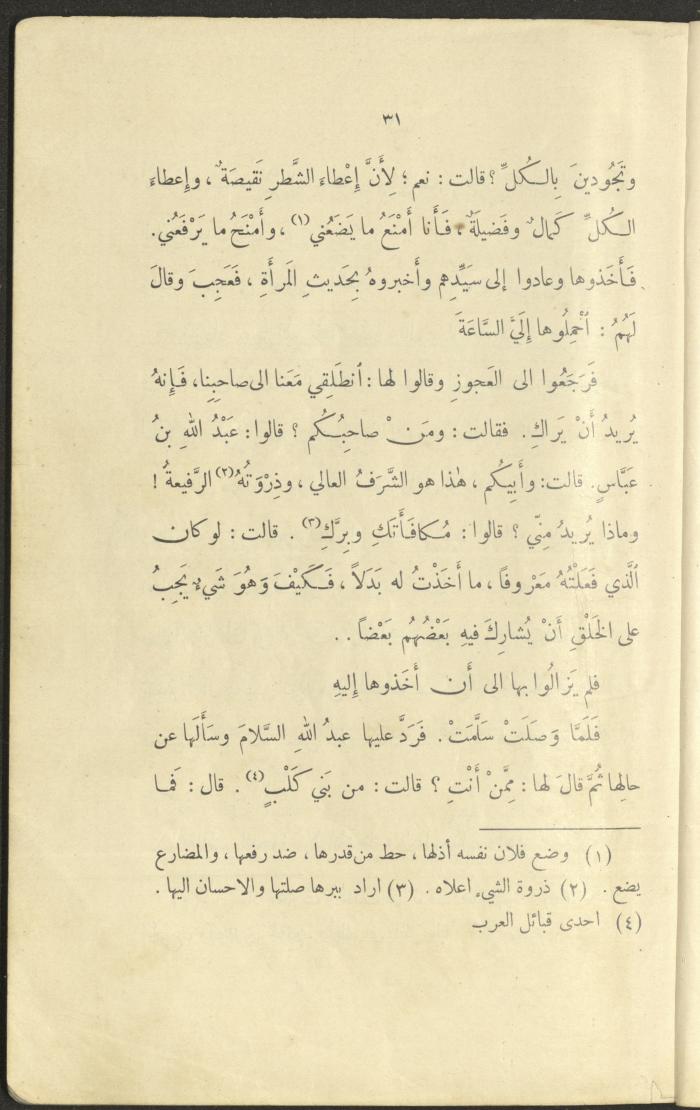 ٣١
وتَجُودينَ بِالـكُلِّ ؟ قالت : نعم ؛ لِأَنَّ إِعْطاءَ الشَّطرِ نَقيصَةٌ ، وإِعطاءَ
الـكُلِّ كَمالٌ وفَضيلَةٌ ، فَأَنا أَمْنَعُ ما يَضَعُني (١) ، وأَمْنَحُ ما يَرْفَعُني .
فَأَخَذوها وعادوا إلى سَيِّدِهم وأَخبروهُ بِحَديثِ المَرأَةِ ، فَعَجِبَ وقالَ
لَهُمُ : ٱحْمِلُوها إِلَيَّ السَّاعَةَ
فَرَجَعُوا الى العَجوزِ وقالوا لها : ٱنطَلِقي مَعَنا الى صاحِبِنا، فَإِنهُ
يُريدُ أَنْ يَراكِ . فقالت : ومَنْ صاحِبُكُم ؟ قالوا : عَبْدُ اللهِ بنُ
عَبَّاسٍ . قالت : وأَبِيكُم ، هٰذا هو الشَّرَفُ العالي ، وذِرْوَتُهُ (٢) الرَّفيعةُ !
وماذا يُريدُ مِنِّي ؟ قالوا : مُكافَأَتَكِ وبِرَّكِ (٣) . قالت : لو كان
ٱلَّذي فَعَلْتُهُ مَعْروفاً ، ما أَخَذْتُ له بَدَلاً ، فَكَيْفَ وَهُوَ شَيءٌ يَجِبُ
على الخَلْقِ أَنْ يُشارِكَ فيهِ بَعْضُهُم بَعْضاً . .
فلم يَزالُوا بها الى أَن أَخَذوها إِليهِ
فَلَمَّا وَصَلَتْ سَلَّمَتْ . فَرَدَّ عليها عبدُ اللهِ السَّلامَ وسَأَلَها عن
حالِها ثُمَّ قالَ لها : مِمَّنْ أَنْتِ ؟ قالت : من بَني كَلْبٍ (٤) . قال : فَما
(١) وضع فلان نفسه أذلها ، حط من قدرها ، ضد رفعها ، والمضارع
يضع . (٢) ذروة الشيء اعلاه . (٣) اراد ببرها صلتها والاحسان اليها .
(٤) احدى قبائل العرب